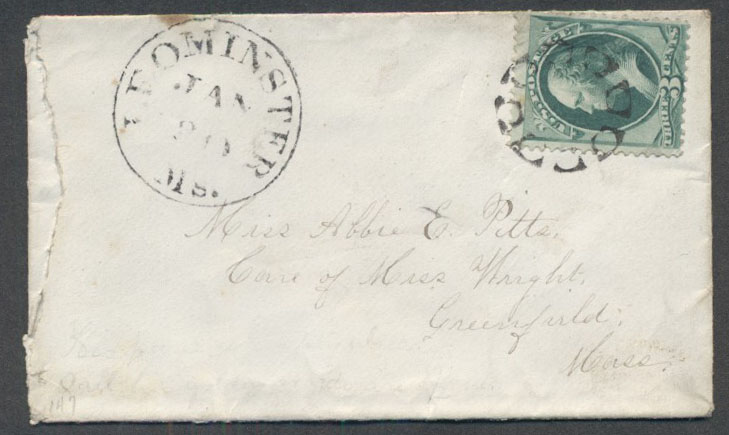 LEOMINSTER
JAN
20
Ms.
U.S. POSTAGE
THREE 3 CENTS
Miss Abbie E. Pitts.
Care of Miss Wright.
Greenfield.
Mass.
147